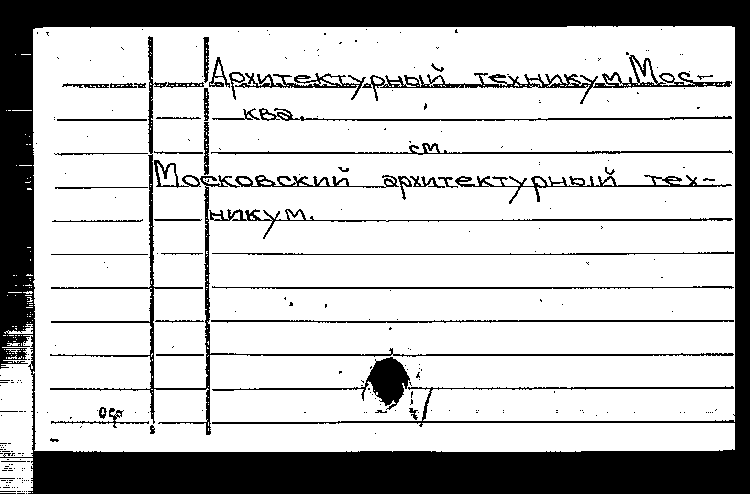 Архитектурный техникум, Мос-
ква.
см.
Московский архитектурный тех-
никум.